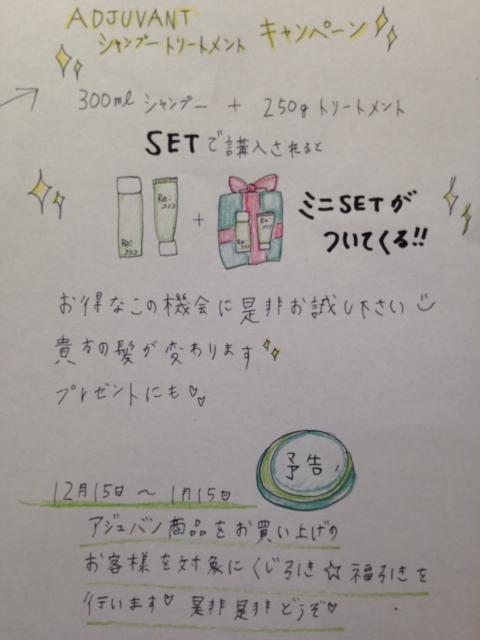 ADJUVANT
シャンプートリートメント キャンペーン
300ml シャンプー + 250g トリートメント
SETで講入されると
Re:
>>>
Re:
>>>
+
Re:
>>>
Re:
>>>
ミニSETが
ついてくる!!
お得なこの機会に是非お誠し下さい
貴方の髪が変わります
プレゼントにも♡♡
予告
12月15日 〜 1月15日
アジュバン商品をお買い上げの
お客様を対象にくじ引き☆福引きを
行います♡ 是非是非どうぞ♡